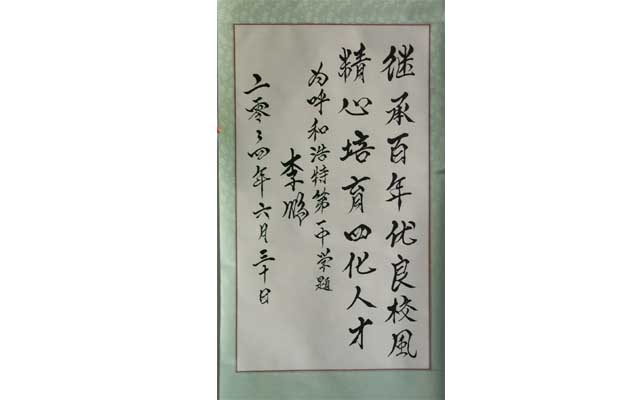 继承百年优良校風
精心培育四化人才
为呼和浩特第一中学题
李鹏
二零零四年六月三十日